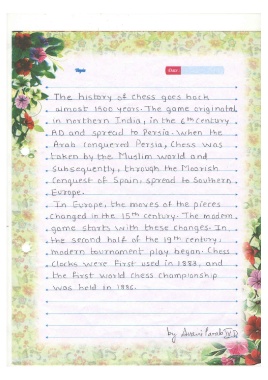 Topic
Date
The history of chess goes back
almost 1500 years. The game originated
in northern India, in the 6th century
AD and spread to Persia. When the
Arab conquered Persia, Chess was
taken by the Muslim world and
Subsequently, through the Moorish
Conquest of Spain, spread to Southern
Europe.
In Europe, the moves of the pieces
changed in the 15th century. The modern
game starts with these changes. In
the second half of the 19th century,
modern tournament play began. Chess
Clocks were First used in 1883, and
the First world chess championship
was held in 1886.
by Parab